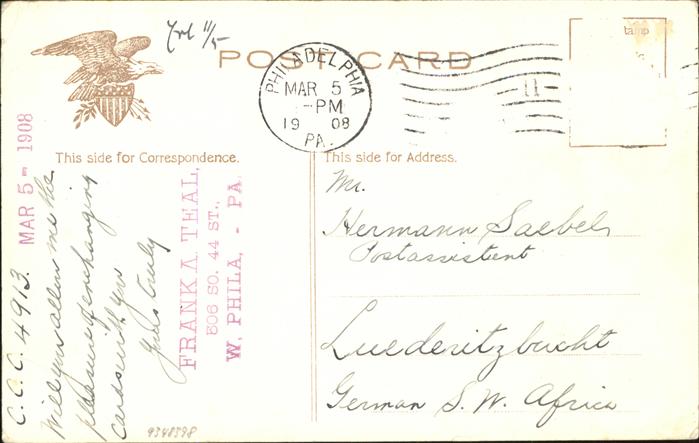 POST CARD
PHILADELPHIA
MAR 5
-PM
19 08
PA.
11
This side for Correspondence.
This side for Address.
C.C.C. 4913. MAR 5- 1908
Will you allow me the
pleasure of exchanging
cards with you
Yours truly
FRANK A TEAL,
506 SO. 44 ST.,
W. PHILA, - PA
Mr.
Hermann Saebel
Postassistent
Luederitzbucht
German S.W. Africa
9348398